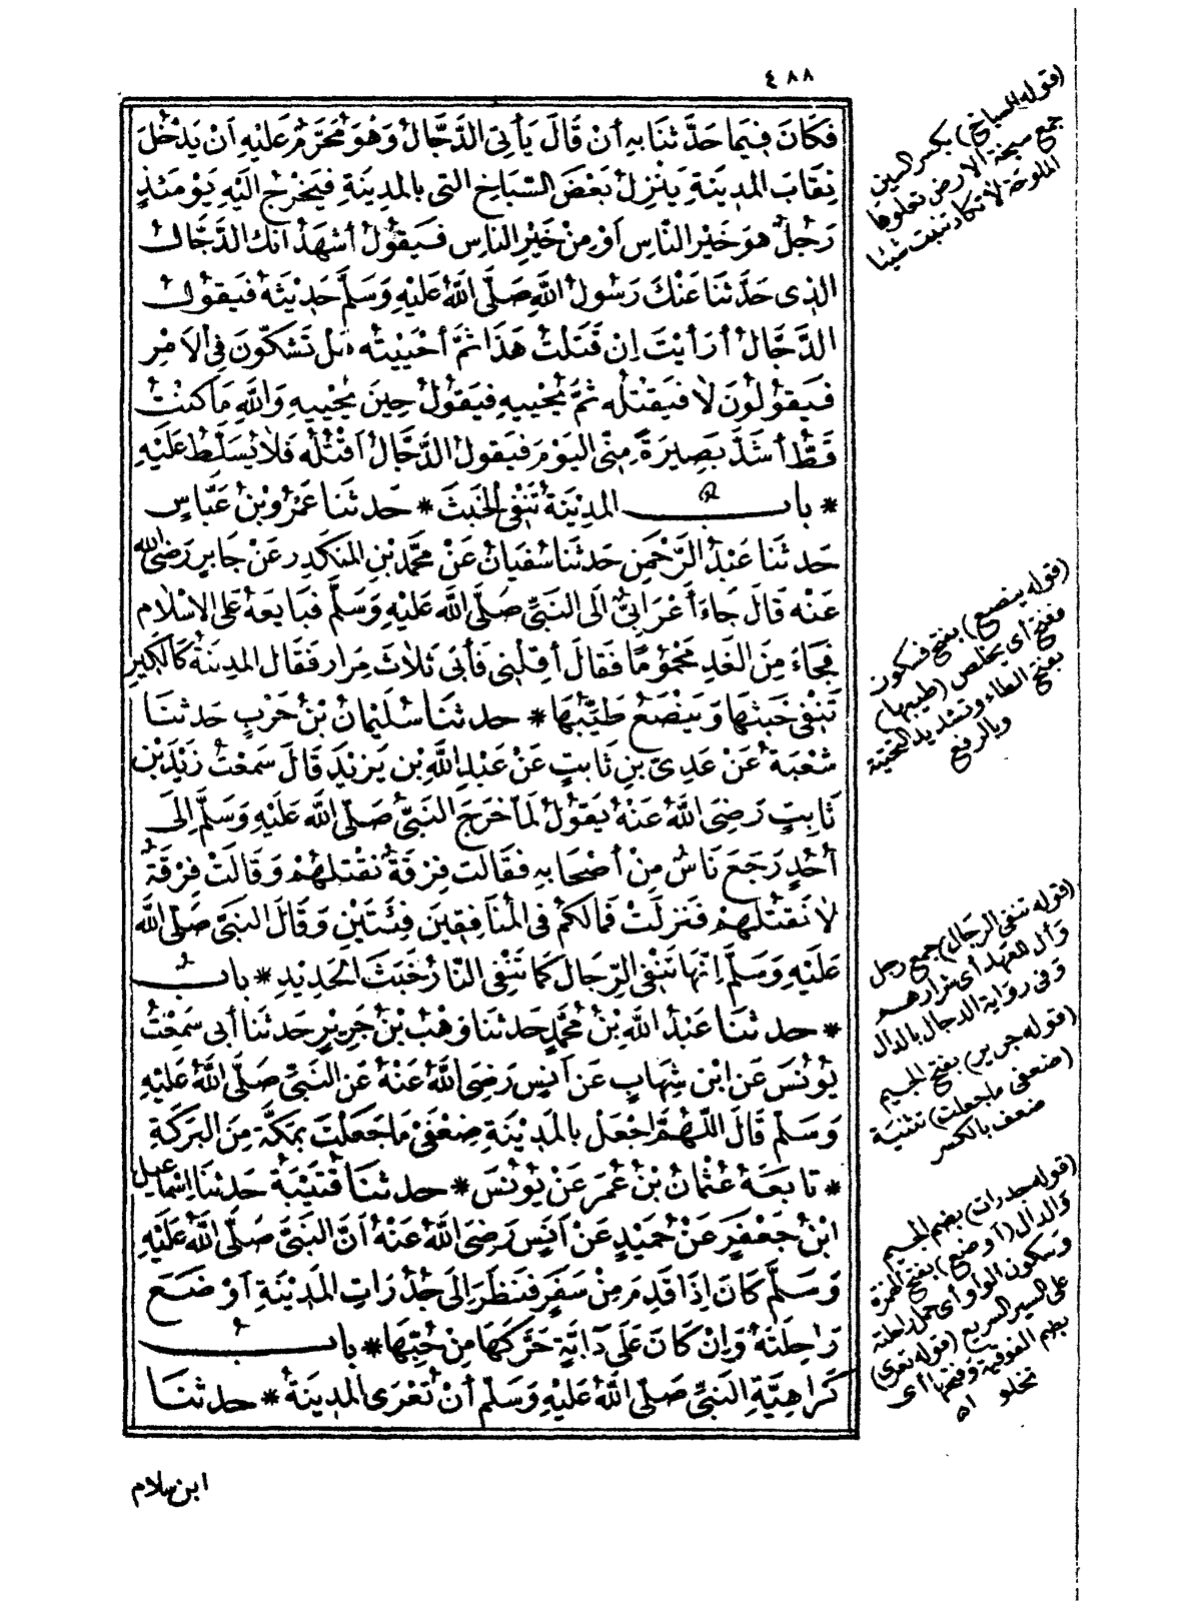 ٤٨٨
فَكَانَ فِيمَا حَدَّثَنَا بِهِ أَنْ قَالَ يَأْتِى الدَّجَّالُ وَهُوَ مُحَرَّمٌ عَلَيْهِ اَنْ يَدْخُلَ
نِقَابَ المَدِيْنَةِ يَنْزِلُ بَعْضَ السِّبَاخِ التى بالمَدِينَةِ فيَخْرُجُ اليَهِ يَوْمَئِذٍ
رَجُلٌ هوَ خَيْرُ النَّاسِ اَوْ مِنْ خَيْرِ الناسِ فَيَقُوْلُ أشهَدُ اَنك الدَّجَّالُ
الذِى حَدَّثَنَا عَنْكَ رَسُولُ اللَّهِ صَلَّى اللَّهُ عَلَيْهِ وَسَلَّمَ حَدِيْثَهُ فَيَقُوْلُ
الدَّجَّالُ أرَأيْتَ اِنْ قَتَلتُ هَذَا ثمَّ أحْيَيْتُه هَل تَشكّونَ فِى الاَمْرِ
فَيَقُوْلُوْنَ لَا فيَقْتُلُه ثمَّ يُحْيِيهِ فيَقُوْلُ حِينَ يُحْيِيهِ وَاللَّهِ مَا كنْتُ
قَطُّ أشَدَّ بَصِيرَةً مِنّى اليَوْمَ فيَقولُ الدَّجَّالُ اَقْتُلُه فَلَا يُسَلَّطُ عَلَيْهِ
* بابٌ المدِيْنَةُ تَنْفِى الخَبَثَ * حَدثنَا عَمْرُو بْنُ عَبَّاسٍ
حَدثنَا عَبْدُ الرَّحْمنِ حَدثنَا سُفيَانُ عَنْ محَمَّدِ بْنِ المنكَدِرِ عَنْ جَابِرٍ رَضِىَ الله
عَنْه قَالَ جَاءَ أعْرَابِىٌّ اِلَى النَبىِّ صَلَّى اللَّه عَلَيْهِ وَسَلَّمَ فبَايَعَهُ عَلى الاِسْلَامِ
فَجَاءَ مِنَ الغَدِ مَحْمُوْمًا فَقالَ أقِلْنِى فَأبَى ثَلَاثَ مِرَارٍ فَقَالَ المدِينَةُ كَالكِيرِ
تَنْفِى خَبَثهَا وَيَنْصَعُ طَيّبُهَا * حدثنَا سُلَيْمَانُ بْنُ حَرْبٍ حَدثنَا
شعْبَةُ عَنْ عَدِىِّ بنِ ثَابتٍ عَنْ عَبْدِ اللَّهِ بْنِ يَزِيْدَ قَالَ سَمعْتُ زَيْدَ بْن
ثَابِتٍ رَضِىَ اللَّهُ عَنْهُ يَقُوْلُ لمَا خَرَجَ النَبىُّ صَلّى اللَّه عَلَيْهِ وَسَلَّمَ اِلَى
اُحُدٍ رَجَعَ نَاسٌ مِنْ أصْحَابِهِ فقَالَت فِرْقَةٌ نقْتلهُمْ وَقَالَتْ فِرْقَةٌ
لَا نَقتُلهُمْ فَنزلَتْ فمَالكمْ فى المُنَافِقِينَ فِئتَيْنِ وَقَالَ النَبىّ صَلى اللَّه
عَلَيْهِ وَسَلَّمَ اِنّهَا تَنْفِى الرِّجَالَ كمَا تَنْفِى النّارُ خَبَثَ الحَدِيْدِ * بابٌ
* حدثنَا عَبْدُ اللَّهِ بْنُ مُحَمَّدٍ حَدثنَا وَهْبُ بْنُ جَرِيرٍ حَدثنَا أبى سَمِعْتُ
يُوْنُسَ عَن ابْنِ شِهَابٍ عَن أنَسٍ رَضِىَ اللَّهُ عَنْهُ عَن النَبِىِّ صَلَّى اللَّهُ عَلَيْهِ
وَسَلَّمَ قَالَ اللّهُمَّ اجْعَل بِالمَدِيْنَةِ ضِعْفَىْ مَا جَعَلْتَ بمَكَّةَ مِنَ البَرَكَةِ
* تابَعَهُ عُثْمَانُ بْنُ عُمَرَ عَنْ يُوْنُسَ * حدثنَا قُتَيْبَةُ حَدثنَا اِسْمَاعِيلُ
ابْنُ جَعْفَرٍ عَنْ حُمَيْدٍ عَنْ أنَسٍ رَضىَ اللَّهُ عَنْهُ اَنَّ النَبىَّ صَلَّى اللَّهُ عَلَيْهِ
وَسَلَّمَ كَانَ اِذَا قَدِمَ مِنْ سَفَرٍ فنَظَرَ اِلَى جُدُرَاتِ المَدِيْنَةِ اَوْضَعَ
رَاحِلَتَهُ وَاِنْ كَانَ عَلَى دَابَّةٍ حَرَّكَهَا مِنْ حُبِّهَا * بابُ
كَرَاهِيَةِ النَبِىِّ صَلَّى اللَّهُ عَلَيْهِ وَسَلَّمَ أنْ تُعْرَى المَدِيْنَةُ * حدثنَا
ابن سلام
(قوله السباخ) بكسر السين
جمع سبخة الارض تعلوها
الملوحة لا تكاد تنبت شيئا
(قوله ينصع) بفتح فسكون
ففتح أى يخلص (طيبها)
بفتح الطاء وتشديد التحتية
وبالرفع
(قوله تنفى الرجال) جمع رجل
وأل للعهد أى شرارهم
وفى رواية الدجال بالدال
(قوله جرير) بفتح الجيم
(ضعفى ما جعلت) تثنية
ضعف بالكسر
(قوله جدرات) بضم الجيم
والدال (أوضع) بفتح الهمزة
وسكون الواو أى حمل راحلته
على السير السريع (قوله تعرى)
بضم الفوقية وفتحها أى
تخلو اه